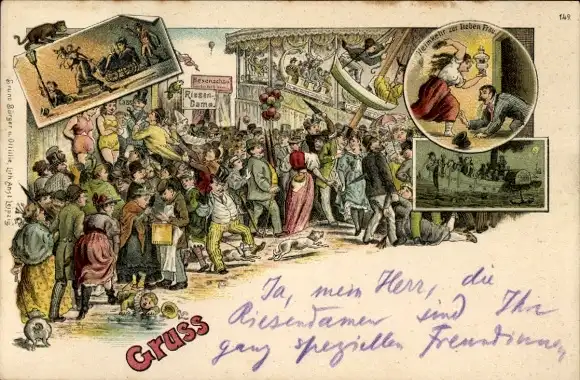 149
Heimkehr zur lieben Frau
Hexenschau
Riesen-
Dame
Bruno Bürger u. Ottillie, Lith. Anst. Leipzig
Gruss
Ja, mein Herr, die
Riesendamen sind Ihre
ganz speziellen Freundinnen